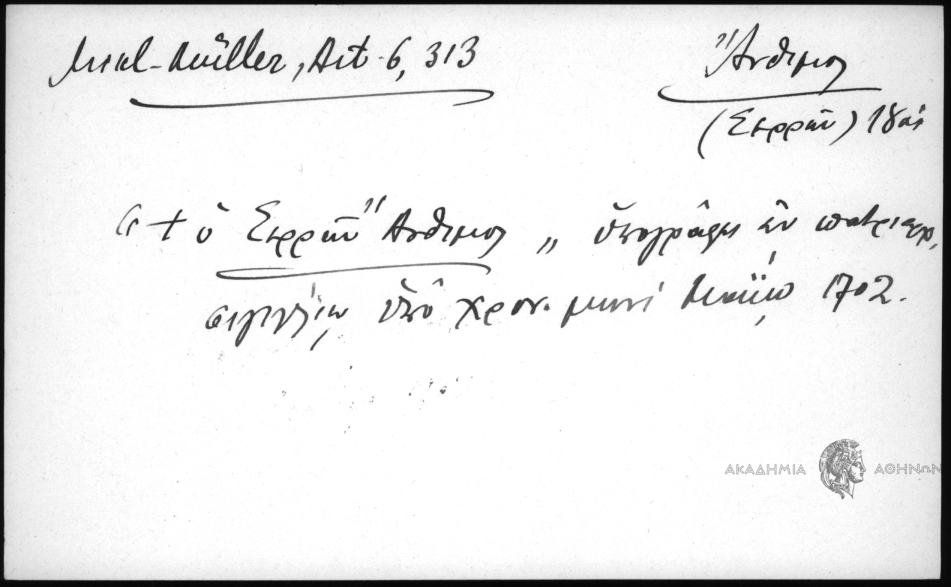 Mikl-Müller, Act. 6, 313
Ἄνθιμος
(Σερρῶν) 18ος
" + ὁ Σερρῶν Ἄνθιμος „ ὑπογράφει ἐν πατριαρχ.
σιγιλλίῳ ὑπὸ χρον. μηνὶ Μαΐῳ 1702.
ΑΚΑΔΗΜΙΑ ΑΘΗΝΩΝ